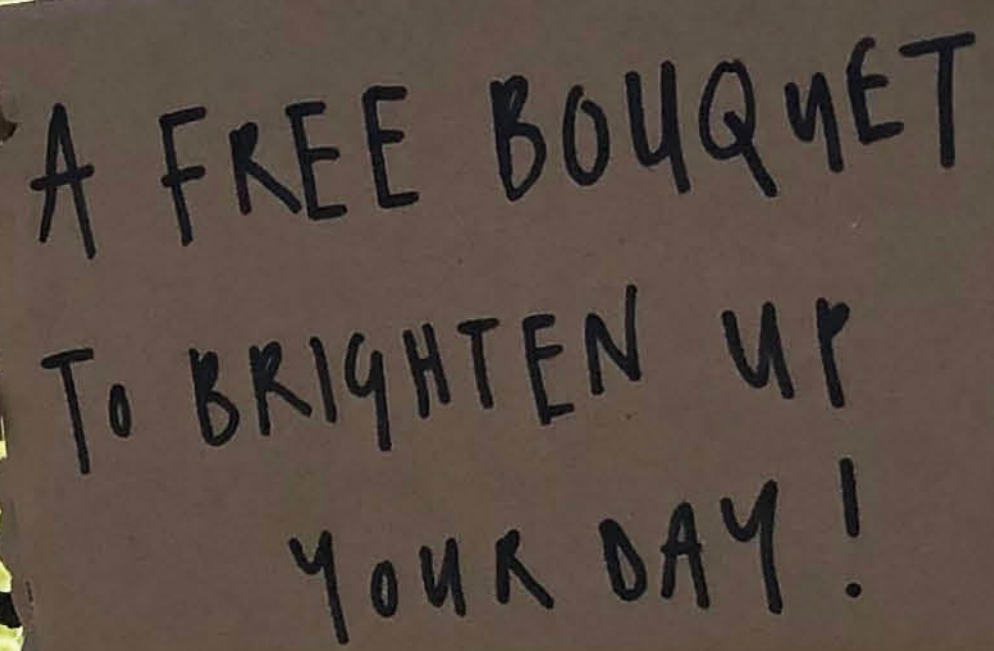 A FREE BOUQUET
To BRIGHTEN UP
YOUR DAY!